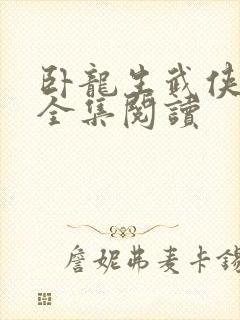 卧龍生武俠
全集閱讀
詹妮弗麦卡錫